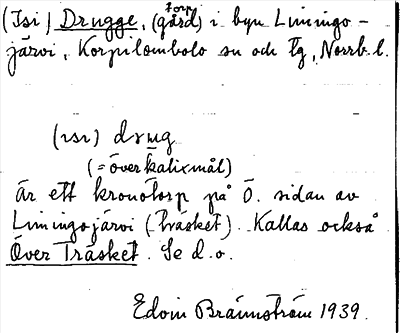 torp
(Isi) Drugge, (gård) i byn Liningo-
järvi, Korpilombolo sn och tg, Norrb. l.
(ısı) drug
(= överkalixmål)
Är ett kronotorp på Ö. sidan av
Liningojärvi (Träsket). Kallas också
Över Träsket. Se d.o.
Edvin Brännström 1939.